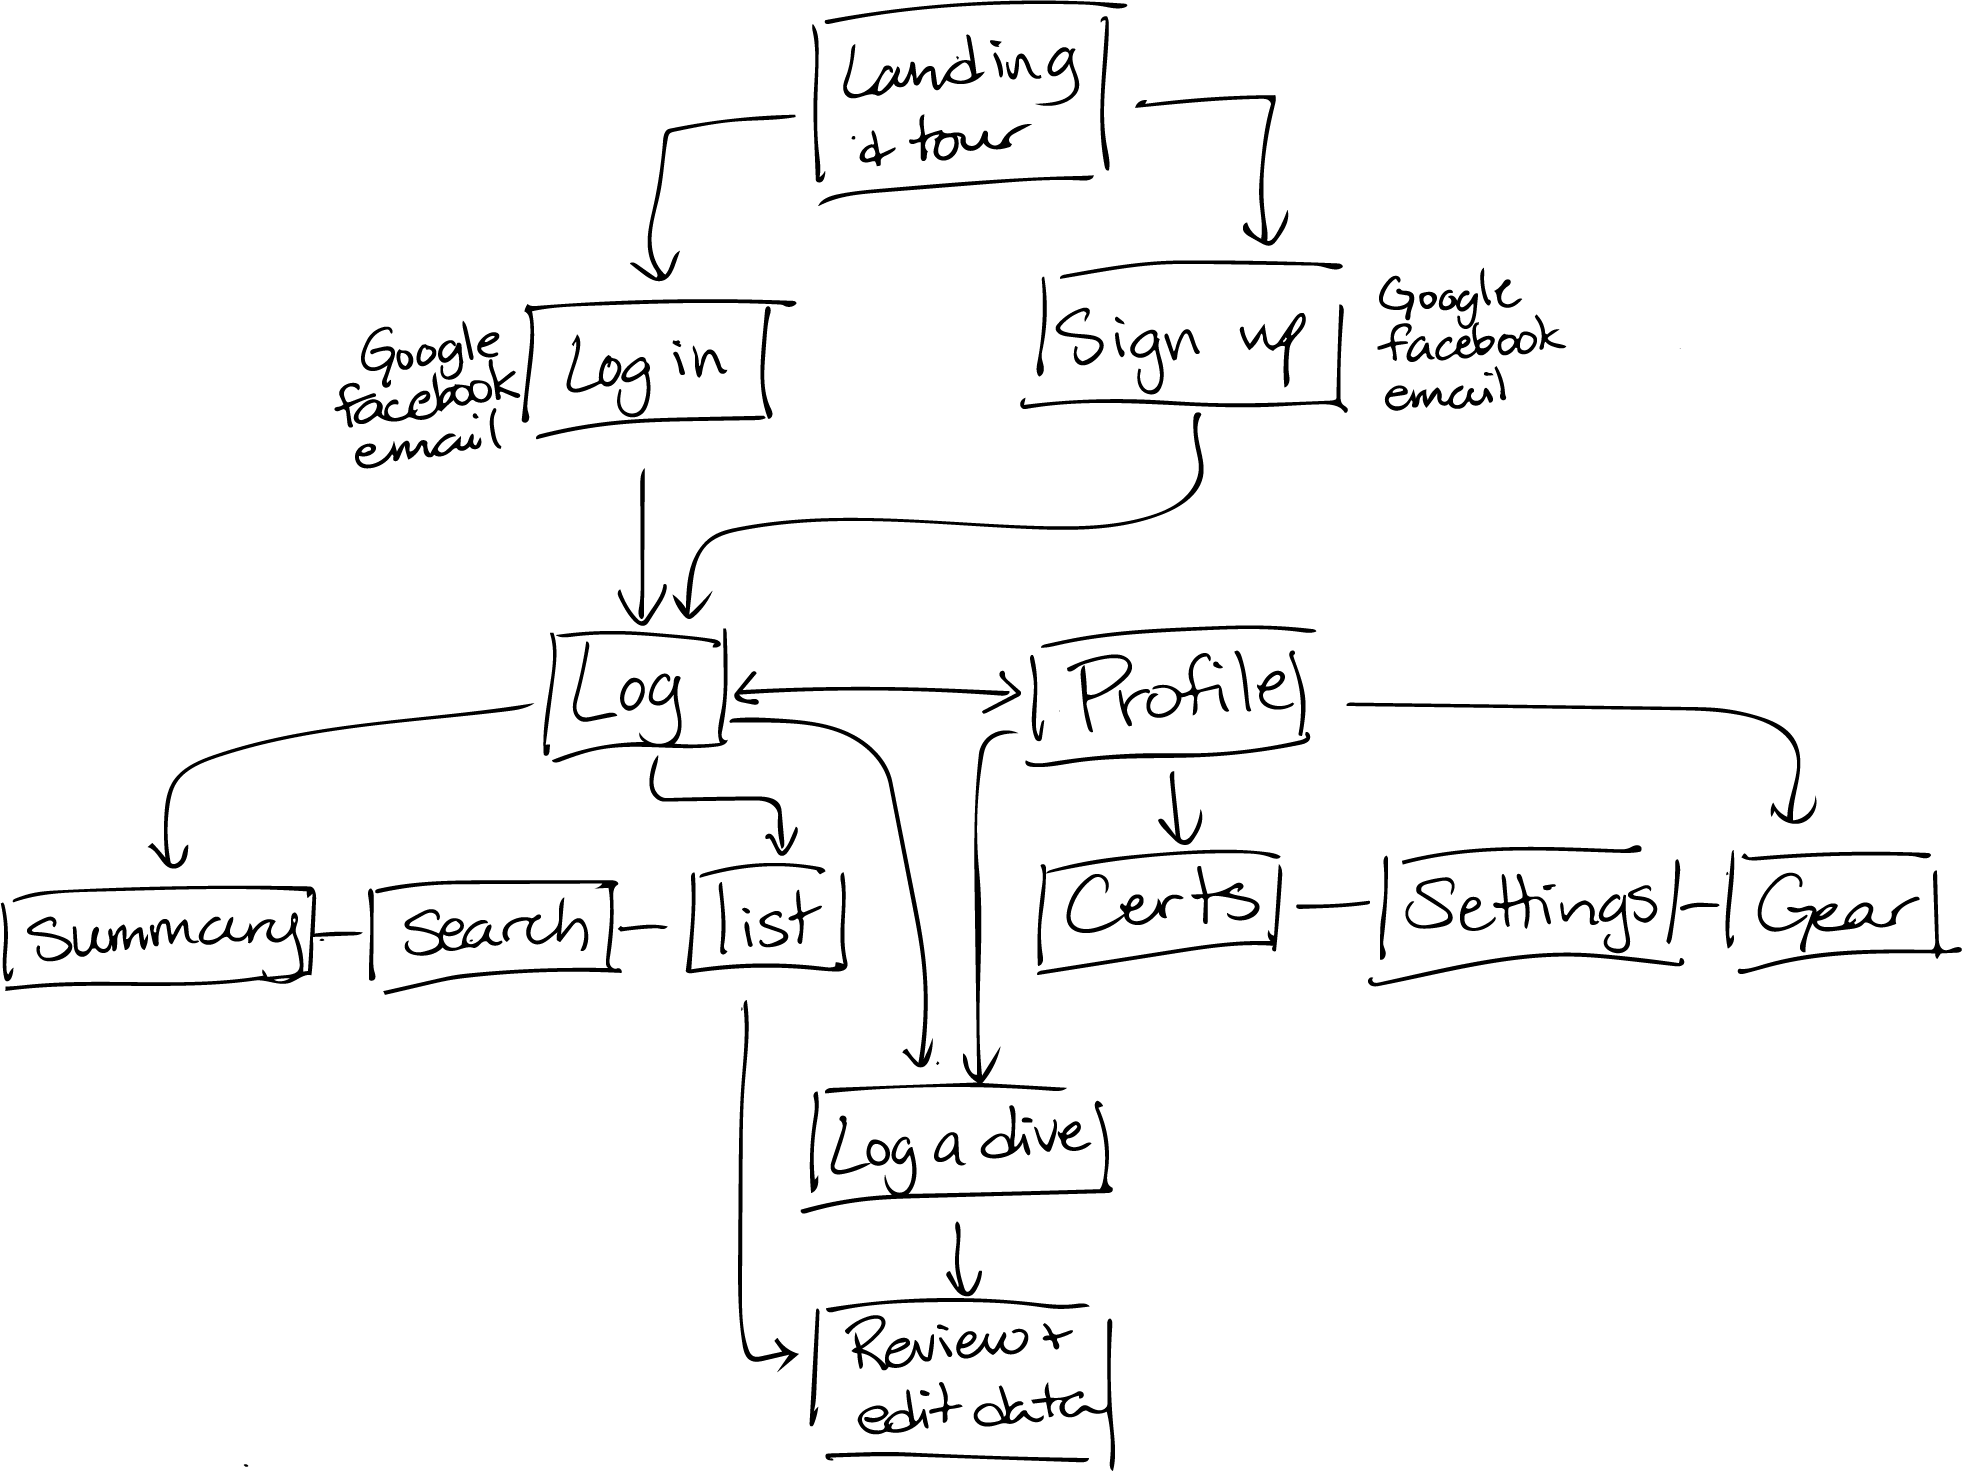 Landing
& tour
Google
facebook
email
Log in
Sign up
Google
facebook
email
Log
Profile
Summary
Search
list
Certs
Settings
Gear
Log a dive
Review +
edit data